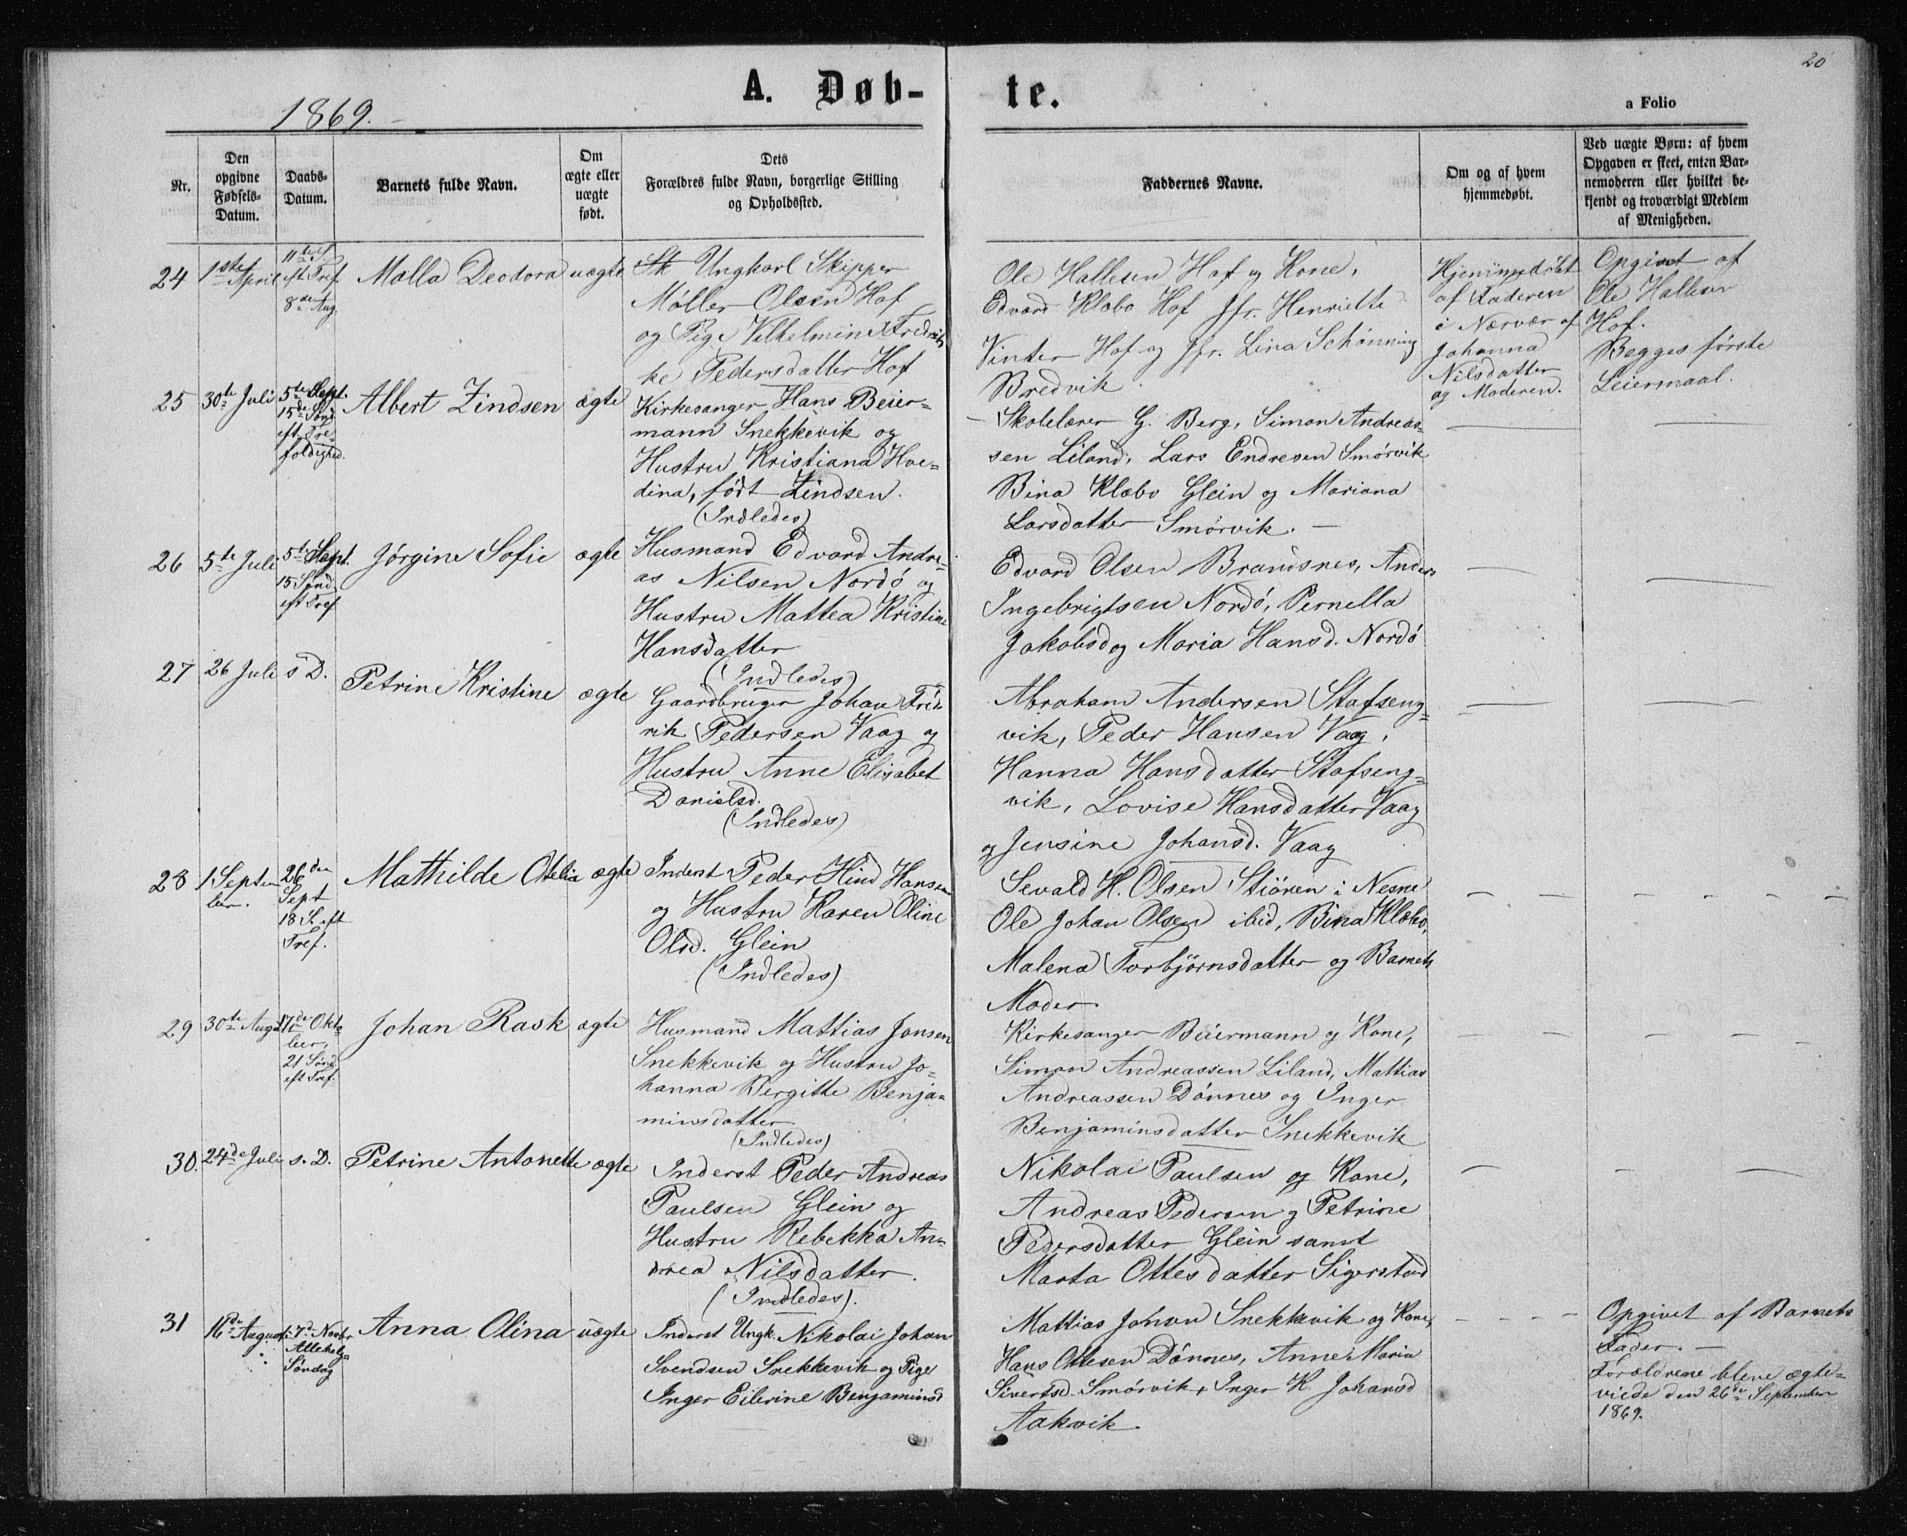 20
1869.
A. Døb-
te.
a Folio
Nr.
Den
opgivne
Fødsels-
Datum.
Daabs-
Datum.
Barnets fulde Navn.
Om
ægte eller
uægte
født.
Dets
Forældres fulde Navn, borgerlige Stilling
og Opholdssted.
Faddernes Navne.
Om og af hvem
hjemmedøbt.
Ved uægte Børn: af hvem
Opgaven er skeet, enten Bar-
nemoderen eller hvilket be-
kjendt og troværdigt Medlem
af Menigheden.
24
1ste April
11te S.
eft Tref
8de Aug.
Malla Deodora
uægte
Ungkarl Skipper
Møller Olsen Hof
og Pige Vilhelmine Fredrik
ke Pedersdatter Hof
Ole Hallesen Hof og Kone,
Edvard Klæbo Hof Jfr. Henriette
Vinter Hof og Jfr. Lina Schønning
Bredvik.
Hjemmedøbt
af Faderen
i Nærvær af
Johanna
Nilsdatter
og Moderen.
Opgivet af
Ole Hallesen
Hof.
Begges første
Leiermaal.
25
30te Juli
5te Sept.
15de Sønd
eft Tre-
foldighed.
Albert Zindsen
ægte
Kirkesanger Hans Beier-
mann Snekkevik og
Hustru Kristiana Hve-
dina, født Zindsen.
(Indledes)
Skolelærer G. Berg, Simon Andreas-
sen Liland, Lars Endresen Smørvik
Bina Klæbo Glein og Mariana
Larsdatter Smørvik.
26
5te Juli
5te Sept.
15 Sønd
eft Tref
Jørgine Sofie
ægte
Husmand Edvard Andre-
as Nilsen Nordø og
Hustru Mattea Kristine
Hansdatter
(Indledes)
Edvard Olsen Brandsnes, Anders
Ingebrigtsen Nordø, Pernella
Jakobsd og Maria Hansd. Nordø
27
26 Juli
s D.
Petrine Kristine
ægte
Gaardbruger Johan Frid-
rik Pedersen Vaag og
Hustru Anne Elisabet
Danielsd.
(Indledes)
Abraham Andersen Stafseng-
vik, Peder Hansen Vaag,
Hanna Hansdatter Stafseng-
vik, Lovise Hansdatter Vaag
og Jensine Johansd. Vaag
28
1 Septem
ber.
26den
Sept
18 S. eft
Tref.
Mathilde Otelia
ægte
Inderst Peder Hind Hansen
og Hustru Karen Oline
Olsd. Glein
(Indledes)
Sevald H. Olsen Stiøren i Nesne
Ole Johan Olsen ibid, Bina Klæbo,
Malena Torbjørnsdatter og Barnets
Moder
29
30te Aug
17de Okto
ber,
21 Sønd
eft Tref.
Johan Rask
ægte
Husmand Mattias Jonsen
Snekkevik og Hustru Jo-
hanna Bergitte Benja-
minsdatter
(Indledes)
Kirkesanger Beiermann og Kone,
Simon Andreassen Liland, Mattias
Andreassen Dønnes og Inger
Benjaminsdatter Snekkevik
30.
24de Juli
s. D.
Petrine Antonette
ægte
Inderst Peder Andreas
Paulsen Glein og
Hustru Rebekka An-
drea Nilsdatter.
(Indledes).
Nikolai Paulsen og Kone,
Andreas Pedersen og Petrine
Pedersdatter Glein samt
Marta Ottesdatter Sigerstad
31
16de August
7de Novbr
Allehelg
Søndag
Anna Olina
uægte
Inderst Ungk. Nikolai Johan
Svendsen Snekkevik og Pige
Inger Eilerine Benjaminsd
Mattias Johan Snekkevik og Kone,
Hans Ottesen Dønnes, Anne Maria
Sivertsd. Smørvik, Inger K. Johansd
Aakvik
Opgivet af Barnets
Fader.
Forældrene bleve ægte-
viede den 26de September
1869.